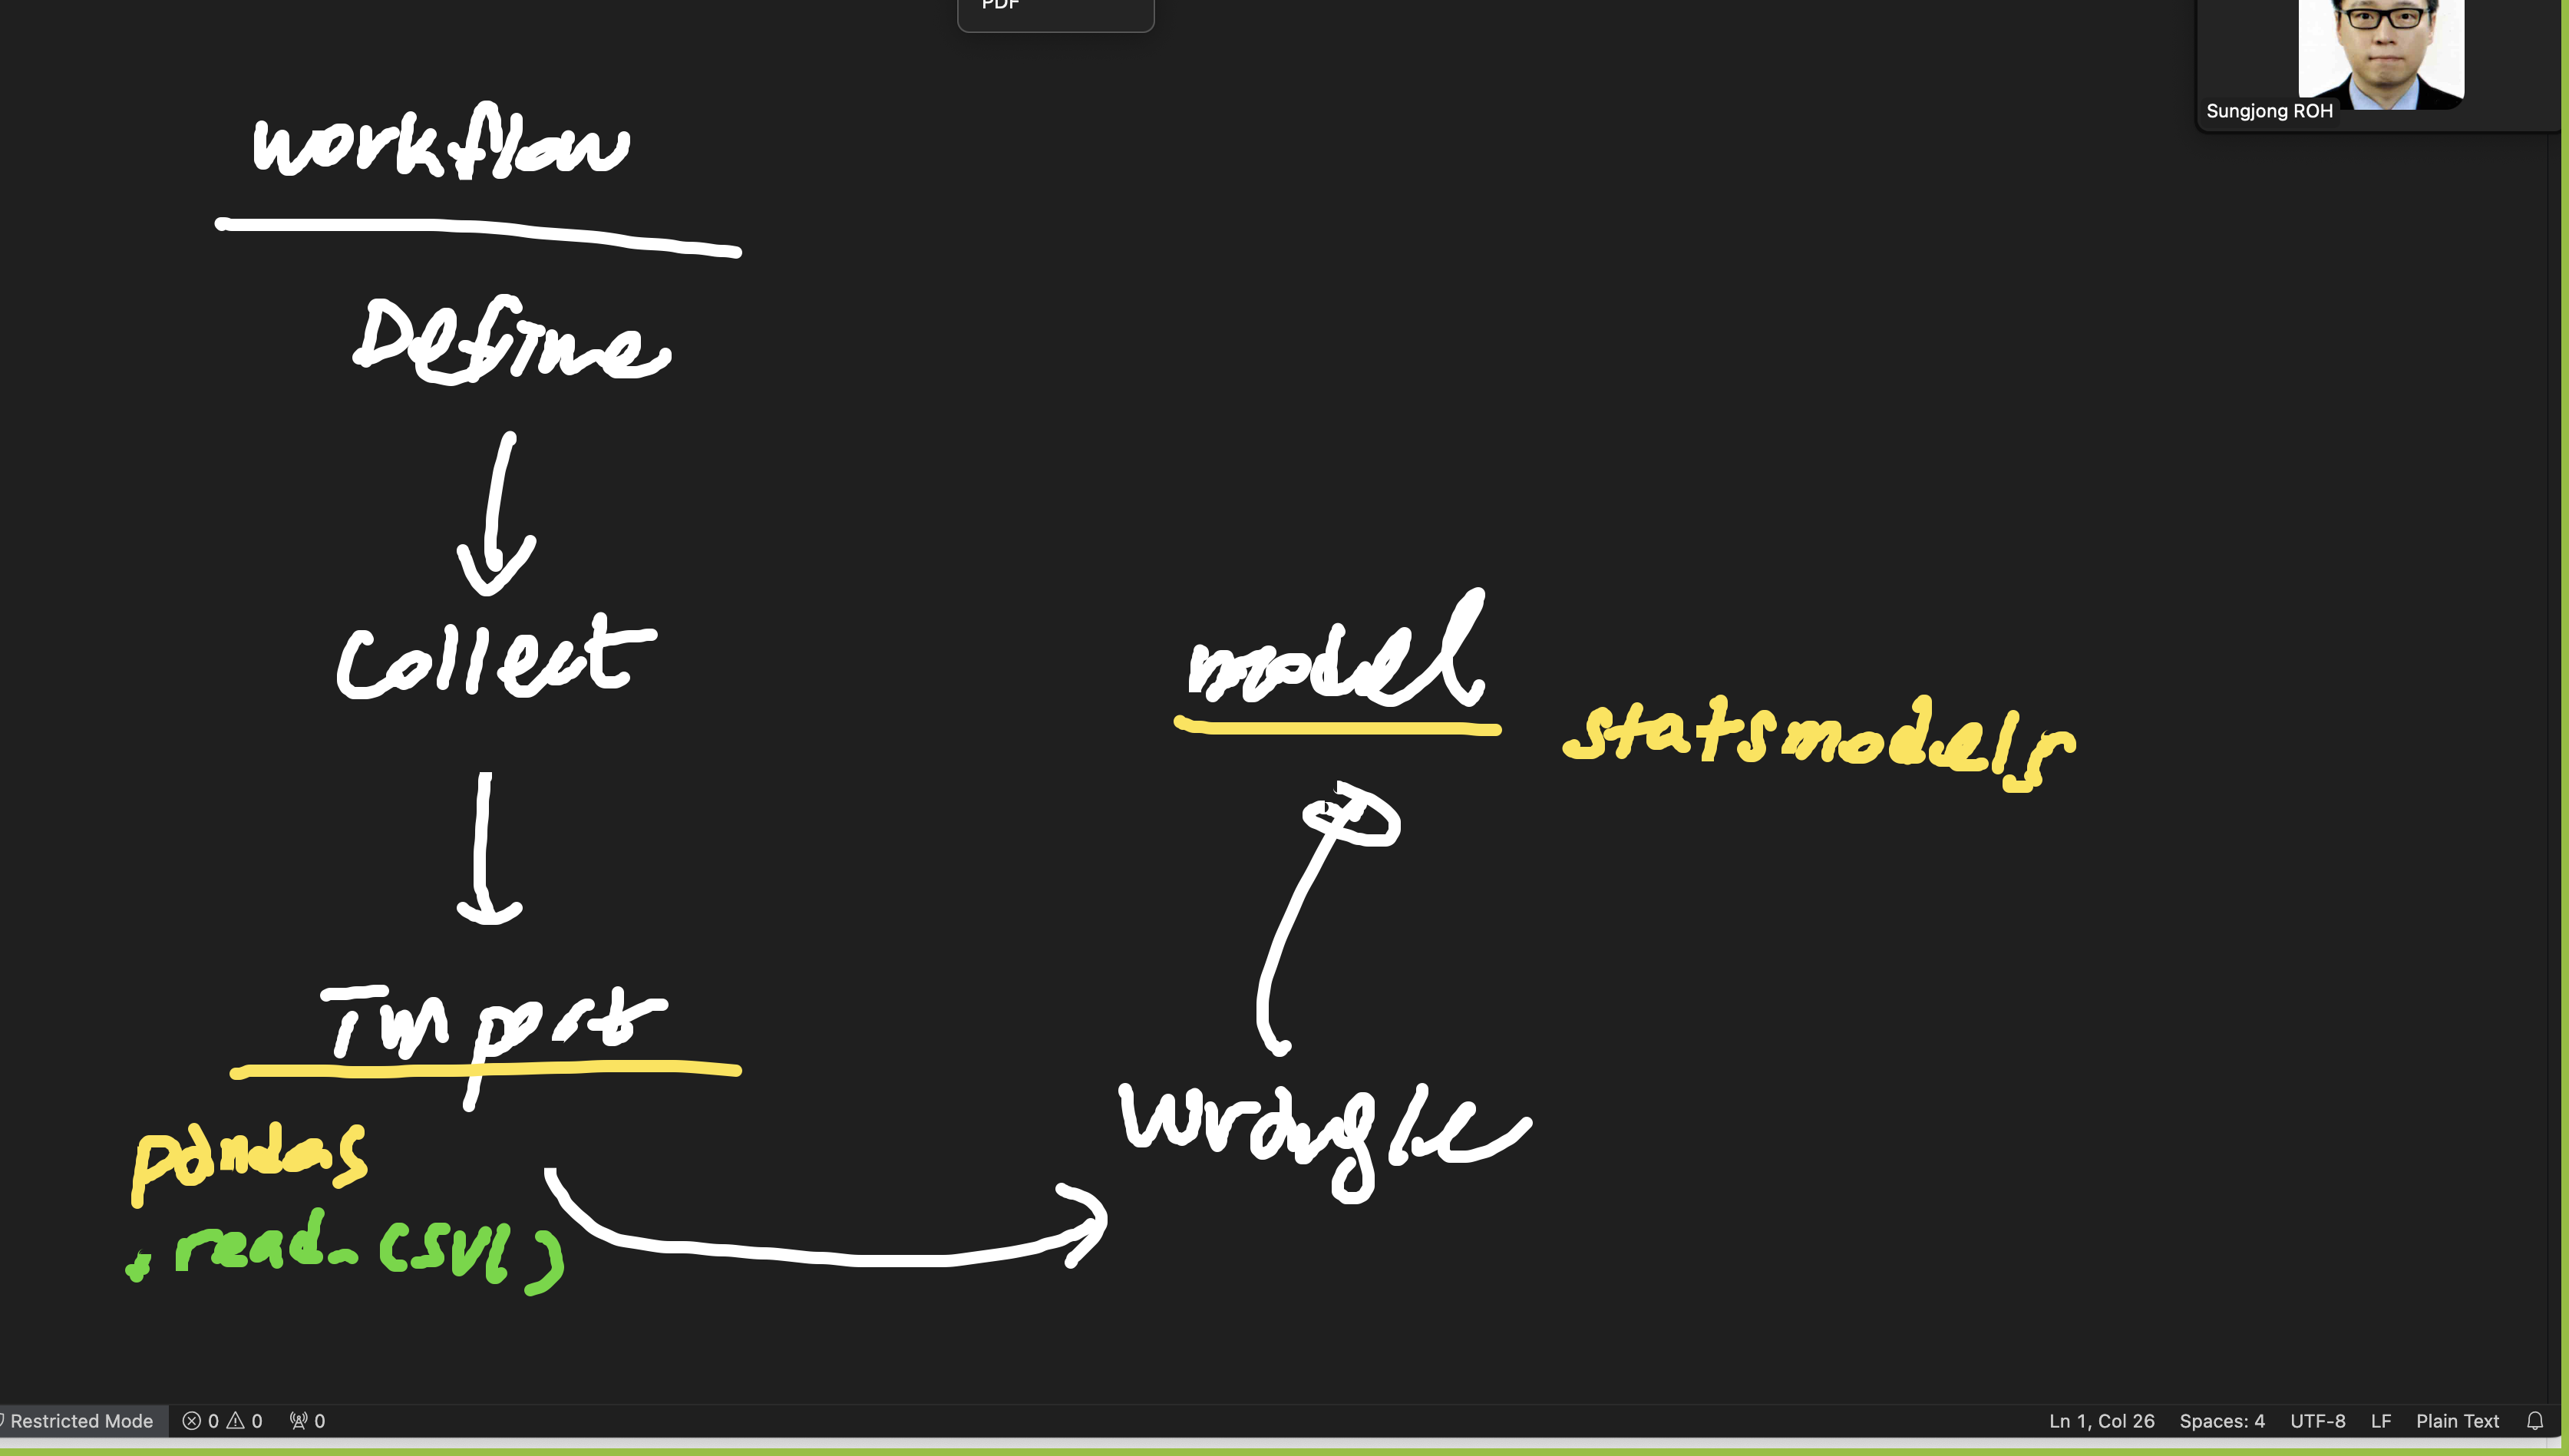 PDF
Sungjong ROH
workflow
Define
Collect
Import
pandas
.read_csv()
model
statsmodels
Wrangle
Restricted Mode 0 0 0
Ln 1, Col 26 Spaces: 4 UTF-8 LF Plain Text